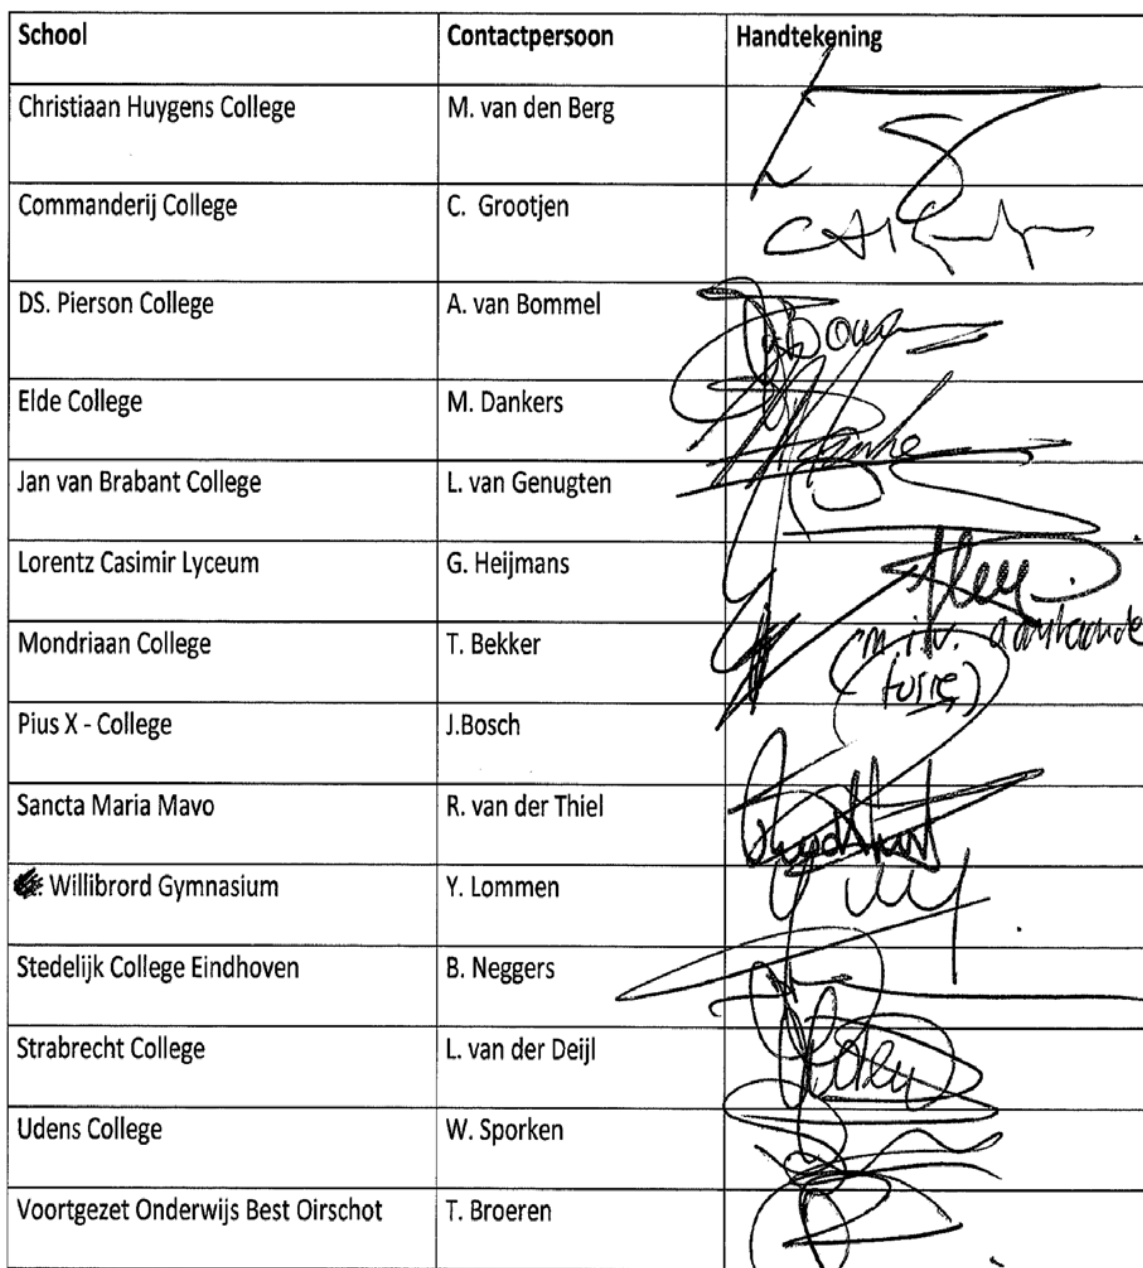 School Contactpersoon Handtekening
Christiaan Huygens College M. van den Berg
Commanderij College C. Grootjen
DS. Pierson College A. van Bommel
Elde College M. Dankers
Jan van Brabant College L. van Genugten
Lorentz Casimir Lyceum G. Heijmans
Mondriaan College T. Bekker
(m.i.v. aanstaande
fusie)
Pius X - College J.Bosch
Sancta Maria Mavo R. van der Thiel
Willibrord Gymnasium Y. Lommen
Stedelijk College Eindhoven B. Neggers
Strabrecht College L. van der Deijl
Udens College W. Sporken
Voortgezet Onderwijs Best Oirschot T. Broeren